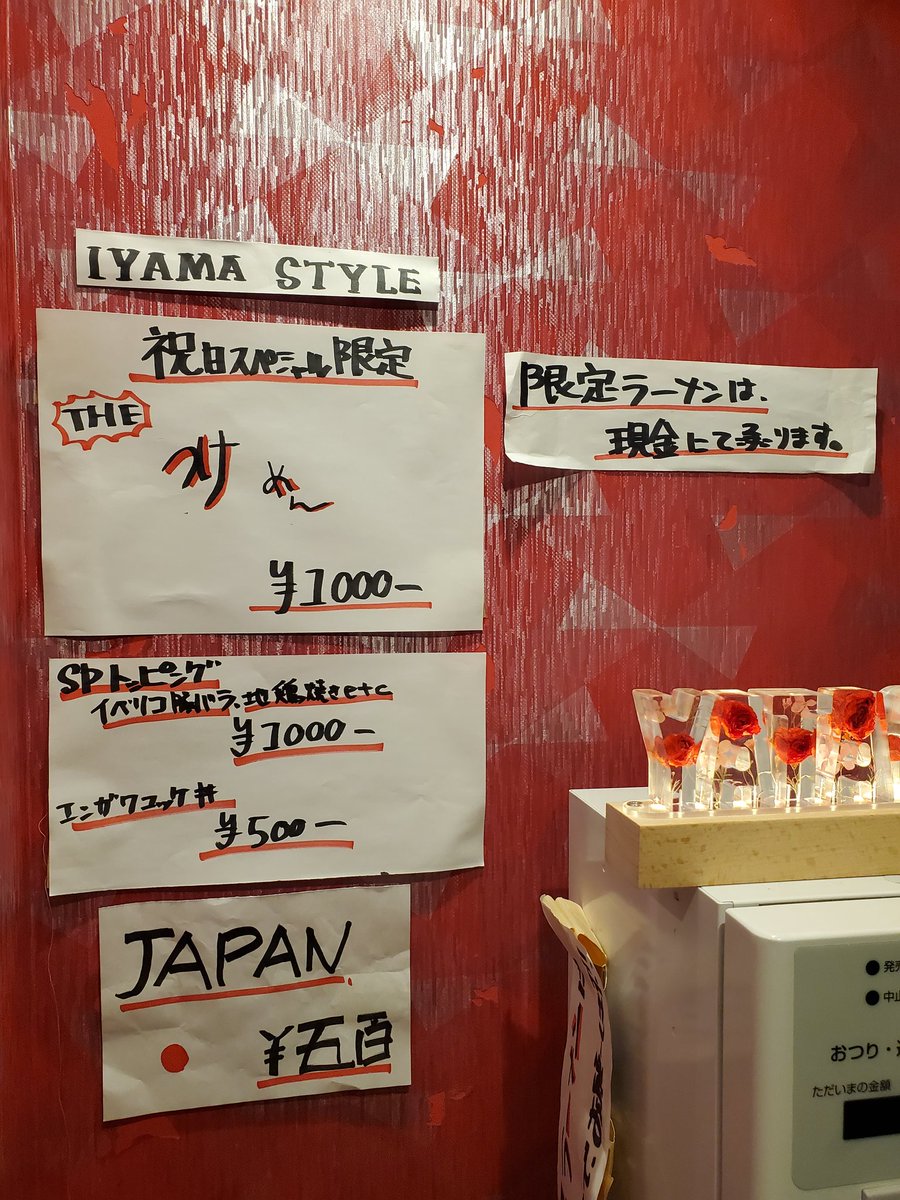 IYAMA STYLE
祝日スペシャル限定
THE
つけ
めん
¥1000-
限定ラーメンは、
現金にて承ります。
SPトッピング
イベリコ豚バラ、地鶏焼きetc
¥1000-
エンザワコッケ丼
¥500-
JAPAN
¥五百
発売
中止
おつり・
ただいまの金額